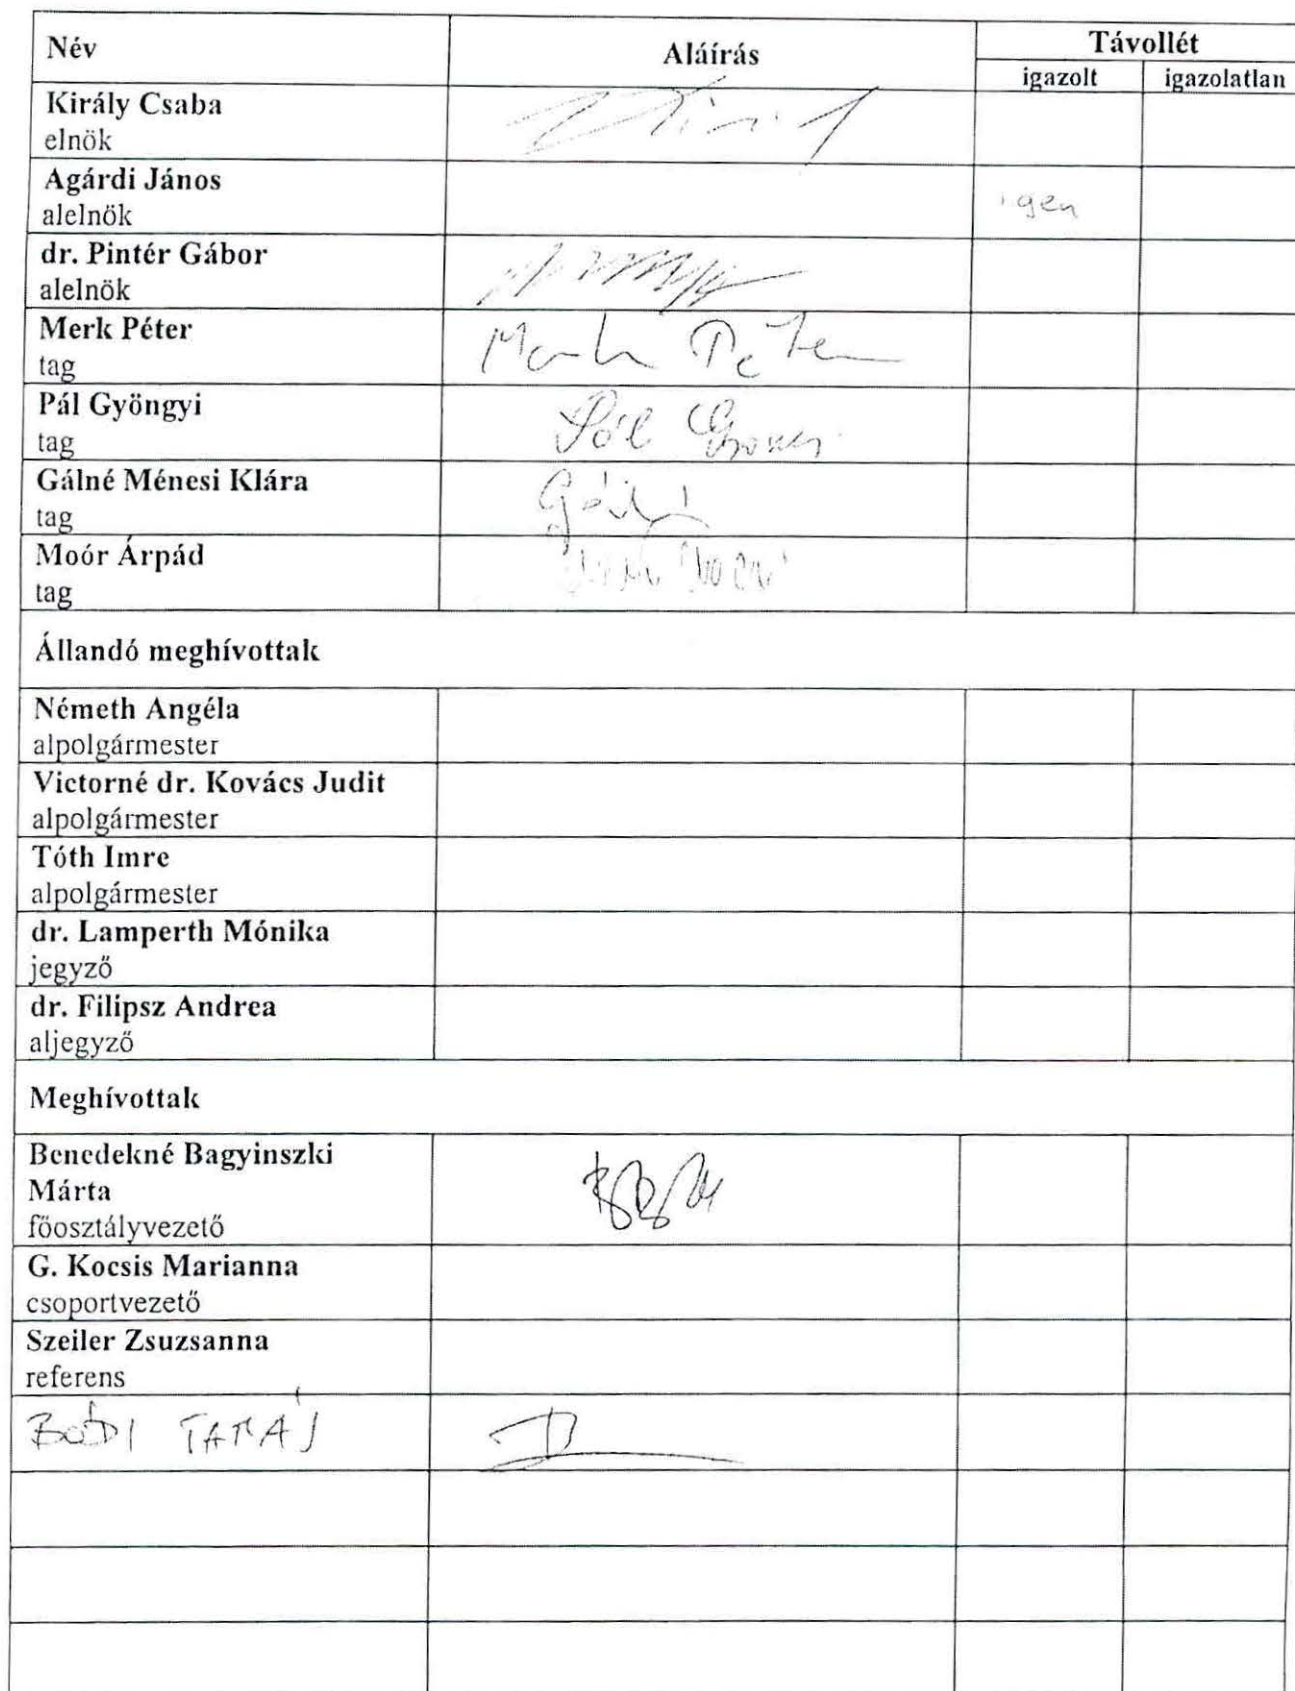 Név Aláírás Távollét
igazolt igazolatlan
Király Csaba
elnök
Agárdi János
alelnök
igen
dr. Pintér Gábor
alelnök
Merk Péter
tag
Merk Péter
Pál Gyöngyi
tag
Pál Gyöngyi
Gálné Ménesi Klára
tag
Moór Árpád
tag
Állandó meghívottak
Németh Angéla
alpolgármester
Victorné dr. Kovács Judit
alpolgármester
Tóth Imre
alpolgármester
dr. Lamperth Mónika
jegyző
dr. Filipsz Andrea
aljegyző
Meghívottak
Benedekné Bagyinszki
Márta
főosztályvezető
G. Kocsis Marianna
csoportvezető
Szeiler Zsuzsanna
referens
BÓDI